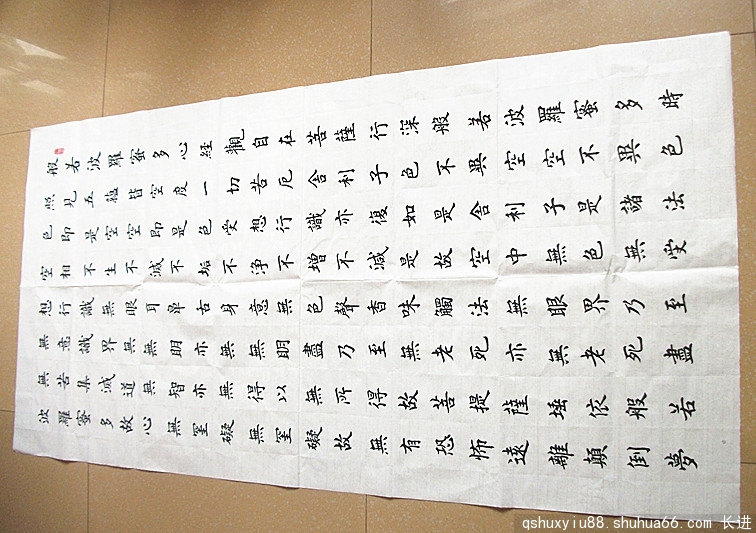 般若波羅蜜多心経觀自在菩薩行深般若波羅蜜多時
照見五蘊皆空度一切苦厄舍利子色不異空空不異色
色即是空空即是色受想行識亦復如是舍利子是諸法
空相不生不滅不垢不淨不增不減是故空中無色無受
想行識無眼耳鼻舌身意無色聲香味觸法無眼界乃至
無意識界無無明亦無無明盡乃至無老死亦無老死盡
無苦集滅道無智亦無得以無所得故菩提薩埵依般若
波羅蜜多故心無罣礙無罣礙故無有恐怖遠離顛倒夢
qshuxyiu88.shuhua66.com 长进